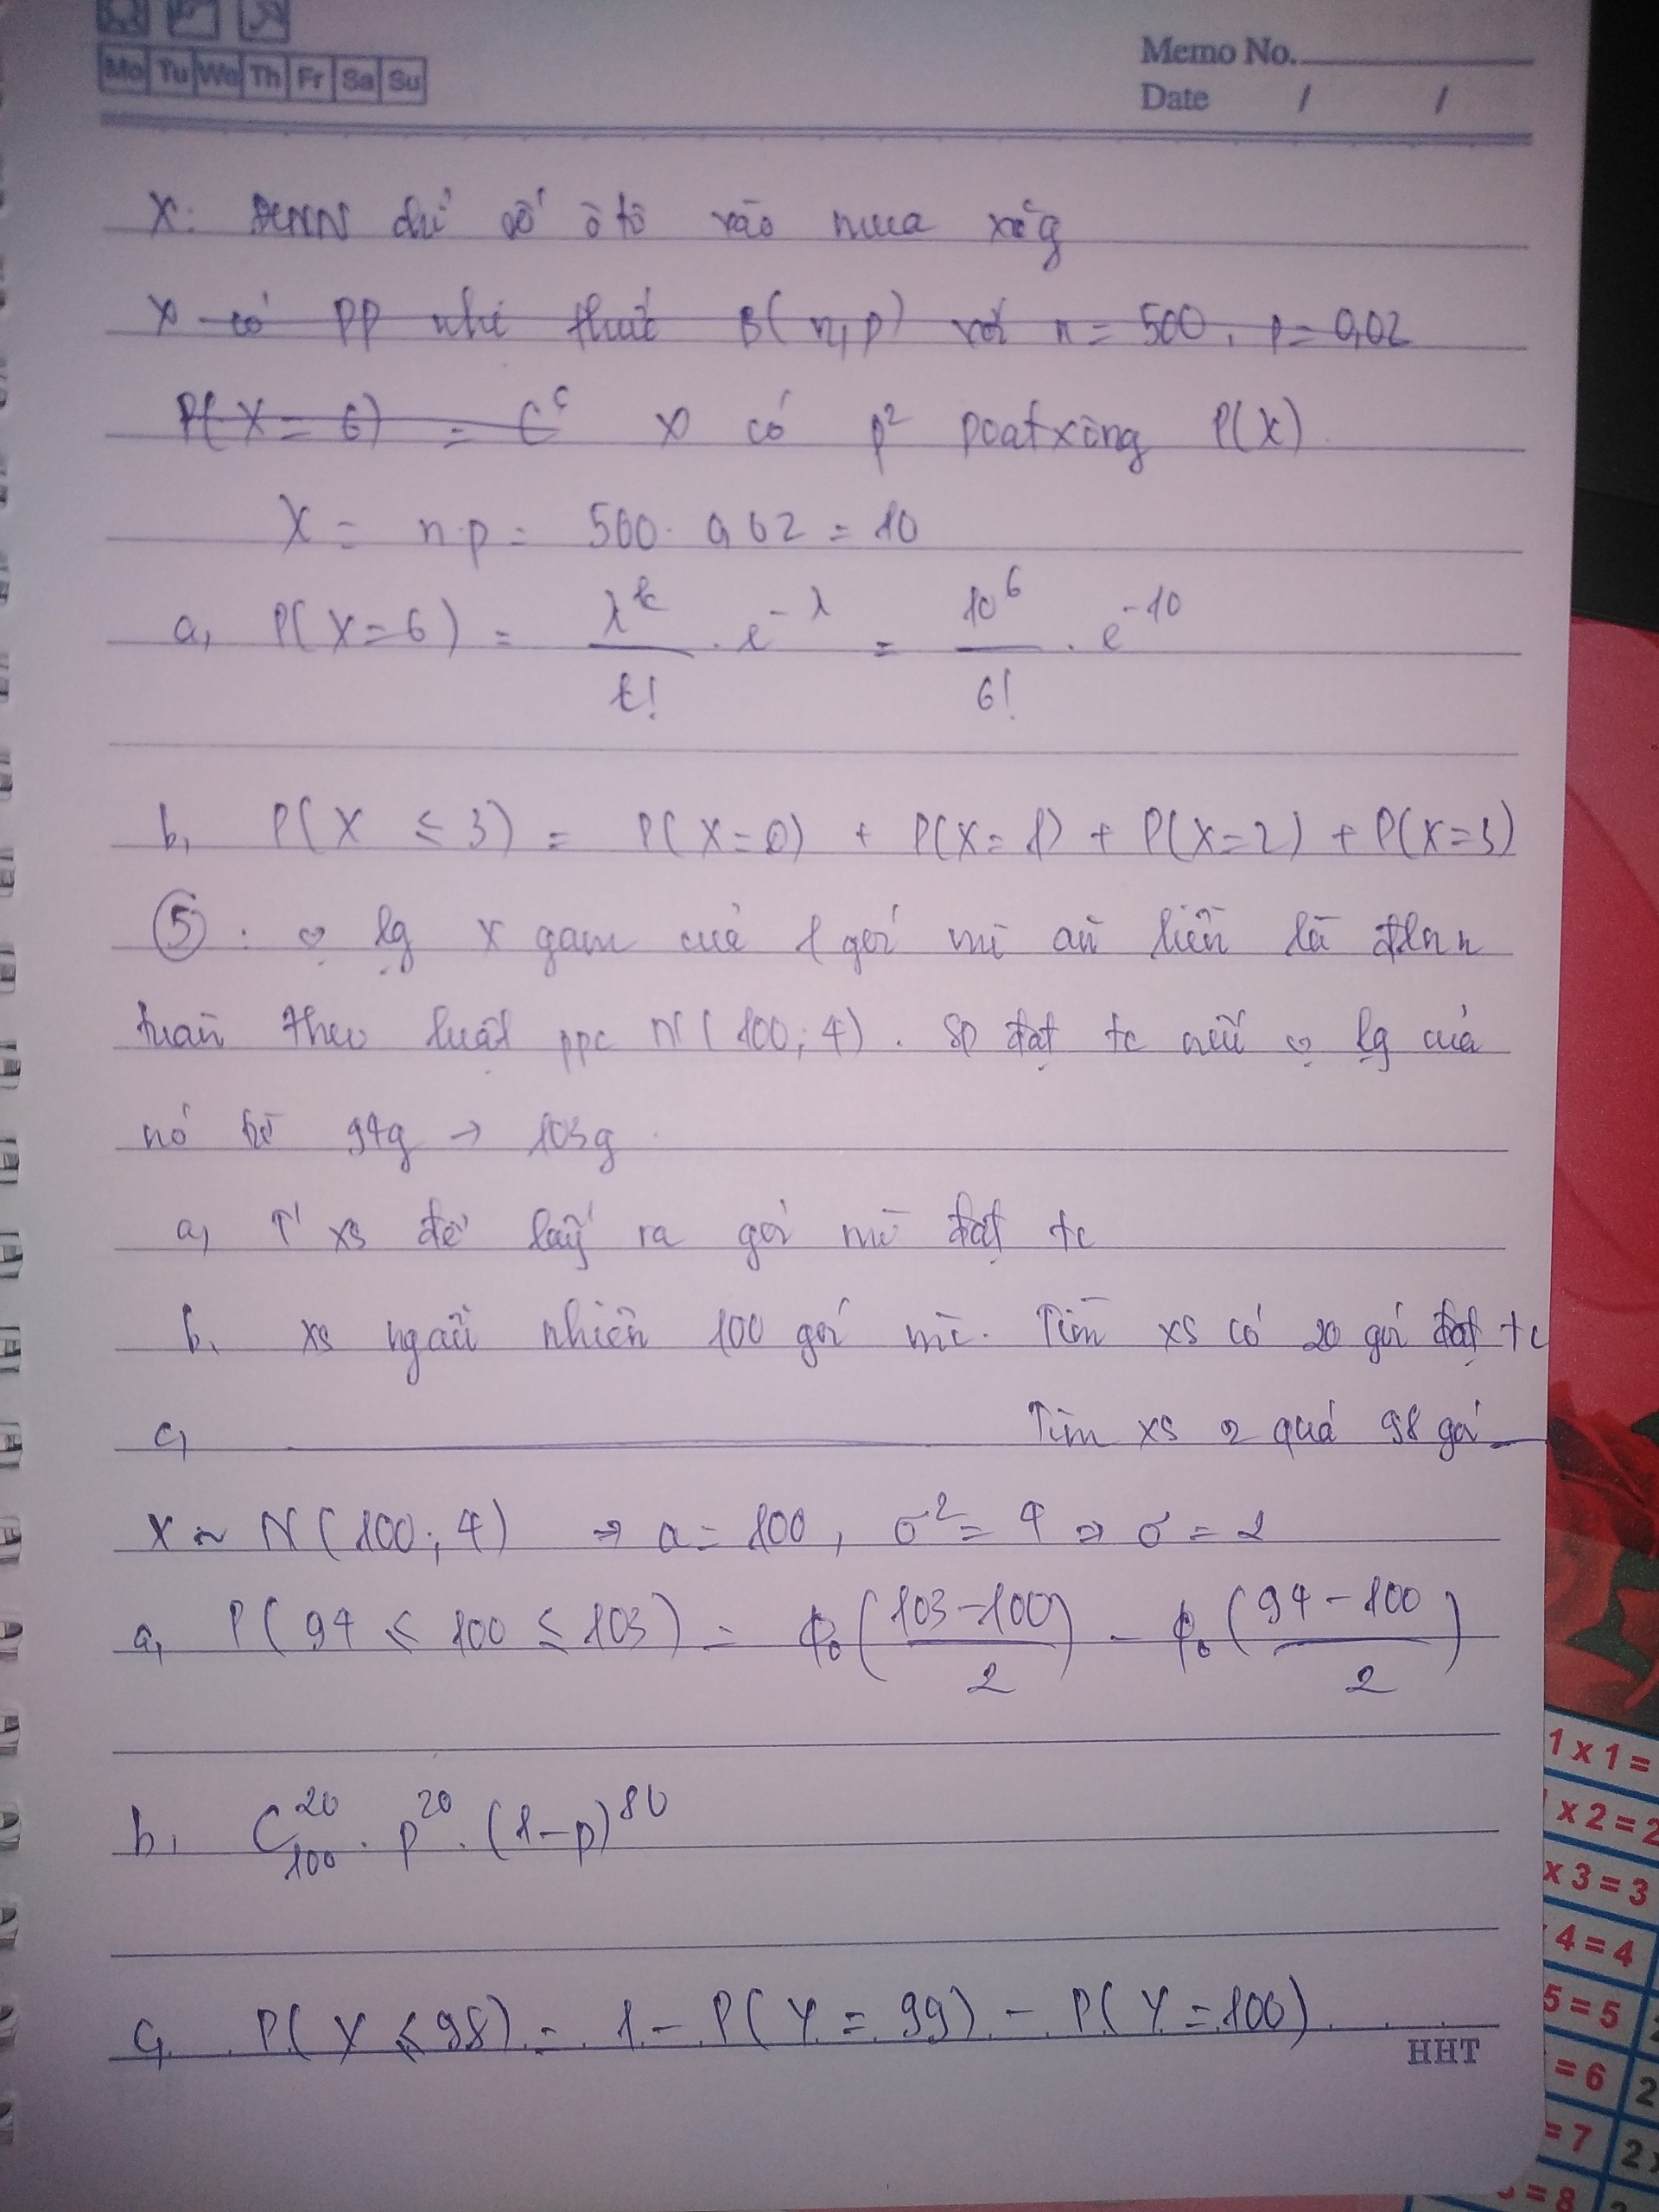 Mo Tu We Th Fr Sa Su
Memo No.
Date / /
X: ĐLNN chỉ số ô tô vào mua xăg
X có PP nhị thức B(n,p) với n = 500, p = 0,02
P(X = 6) = C⁶ X có p² poatxông P(X).
X = n.p = 500. 0,02 = 10
a, P(X=6) = λᵏ/k! . e^-λ = 10⁶/6! . e^-10
b, P(X ≤ 3) = P(X=0) + P(X=1) + P(X=2) + P(X=3)
⑤ . lg X gam của 1 gói mì ăn liền là đlnn
tuân theo luật ppc N(100; 4). SP đạt tc nếu lg của
nó từ 94g → 103g
a, T xs để lấy ra gói mì đạt tc
b, xs ngẫu nhiên 100 gói mì. Tìm xs có 20 gói đạt tc
c, Tìm xs 2 quá 98 gói
X ~ N(100; 4) ⇒ a = 100, σ² = 4 ⇒ σ = 2
a, P(94 ≤ 100 ≤ 103) = ϕ₀((103-100)/2) - ϕ₀((94-100)/2)
b, C₁₀₀²⁰ . p²⁰ . (1-p)⁸⁰
c, P(Y ≤ 98) = 1 - P(Y = 99) - P(Y = 100)
HHT
1 x 1 =
x 2 = 2
x 3 = 3
4 = 4
5 = 5
= 6 2
= 7 2
= 8